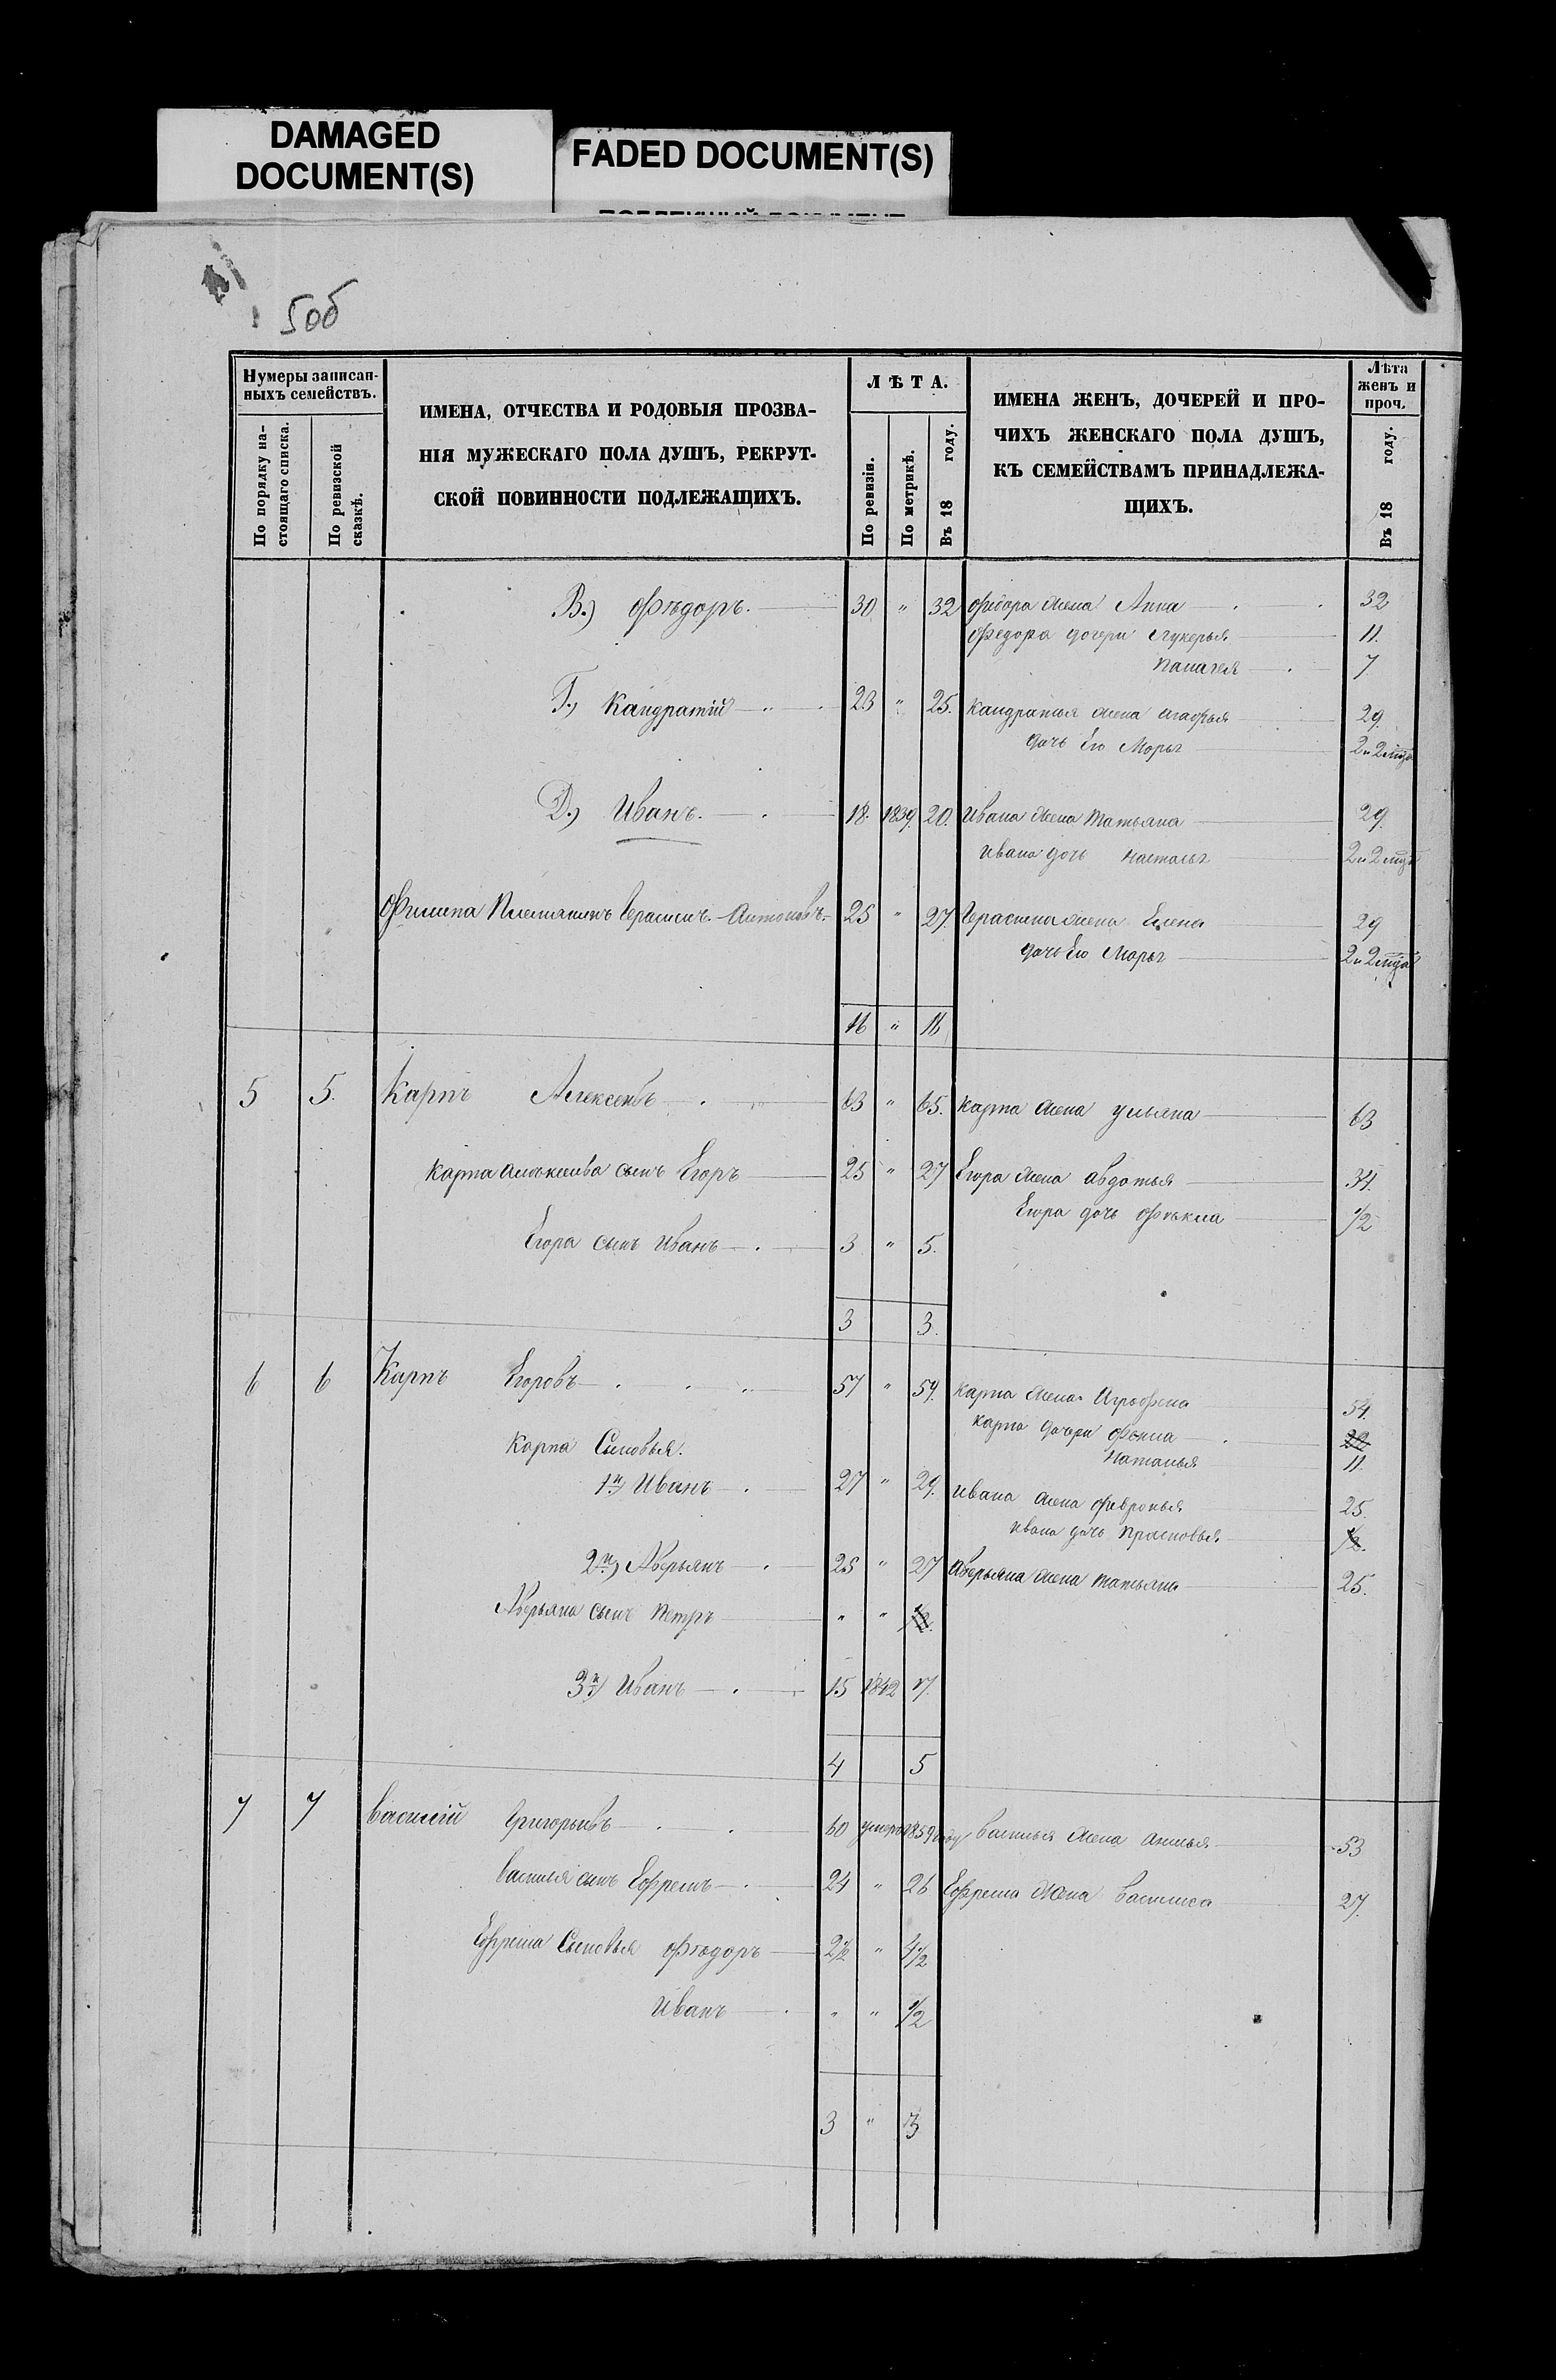 DAMAGED
DOCUMENT(S)
FADED DOCUMENT(S)
5об
Нумеры записан-
ныхъ семействъ.
По порядку на-
стоящаго списка.
По ревизской
сказкѣ.
ИМЕНА, ОТЧЕСТВА И РОДОВЫЯ ПРОЗВА-
НІЯ МУЖЕСКАГО ПОЛА ДУШЪ, РЕКРУТ-
СКОЙ ПОВИННОСТИ ПОДЛЕЖАЩИХЪ.
ЛѢТА.
По ревизіи.
По метрикѣ.
Въ 18 году.
ИМЕНА ЖЕНЪ, ДОЧЕРЕЙ И ПРО-
ЧИХЪ ЖЕНСКАГО ПОЛА ДУШЪ,
КЪ СЕМЕЙСТВАМЪ ПРИНАДЛЕЖА-
ЩИХЪ.
Лѣта
женъ и
проч.
Въ 18 году.
В.) Фѣдоръ. 30 " 32 Фидора жена Анна 32
Федора дочери Лукерья 11.
7
Г.) Кандратій 23 " 25. Кандратья жена Агафья 29.
дочь Его Марья 2 и 2 мѣца
Д.) Иванъ. 18. 1839. 20. Ивана жена Татьяна 29.
Ивана дочь Наталья 2 и 2 мѣца
Филипа Племянникъ Герасимъ Антоновъ 25 " 27. Герасима жена Елена 29
дочь Его Марья 2 и 2 мѣца
16 " 16
5 5. Карпъ Алексеевъ 63 " 65. Карпа жена Ульяна 63
Карпа Алѣксеива сынъ Егоръ 25 " 27 Егора жена Авдотья 34.
Егора дочь Фѣкла 1/2
Егора сынъ Иванъ 3 " 5.
3 3.
6 6 Карпъ Егоровъ 57 " 59. Карпа жена Аграфена 54.
Карпа дочери
Карпа Сыновья. Наталья 11.
1й) Иванъ 27 " 29. Ивана жена Февронья 25.
Ивана дочь Прасковья 1/2
2й) Аверьянъ 25 " 27 Аверьяна жена Татьяна 25.
Аверьяна сынъ Петръ " " 1/2
3й) Иванъ 15 1842 17.
4 5
7 7 Василій Григорьевъ 60 умеръ 1859 году Василья жена Аксинья 53
Василья сынъ Ефремъ 24 " 26 Ефрема жена Василиса 27.
Ефрема Сыновья Фѣдоръ 2 1/2 " 4 1/2
Иванъ " " 1/2
3 " 3